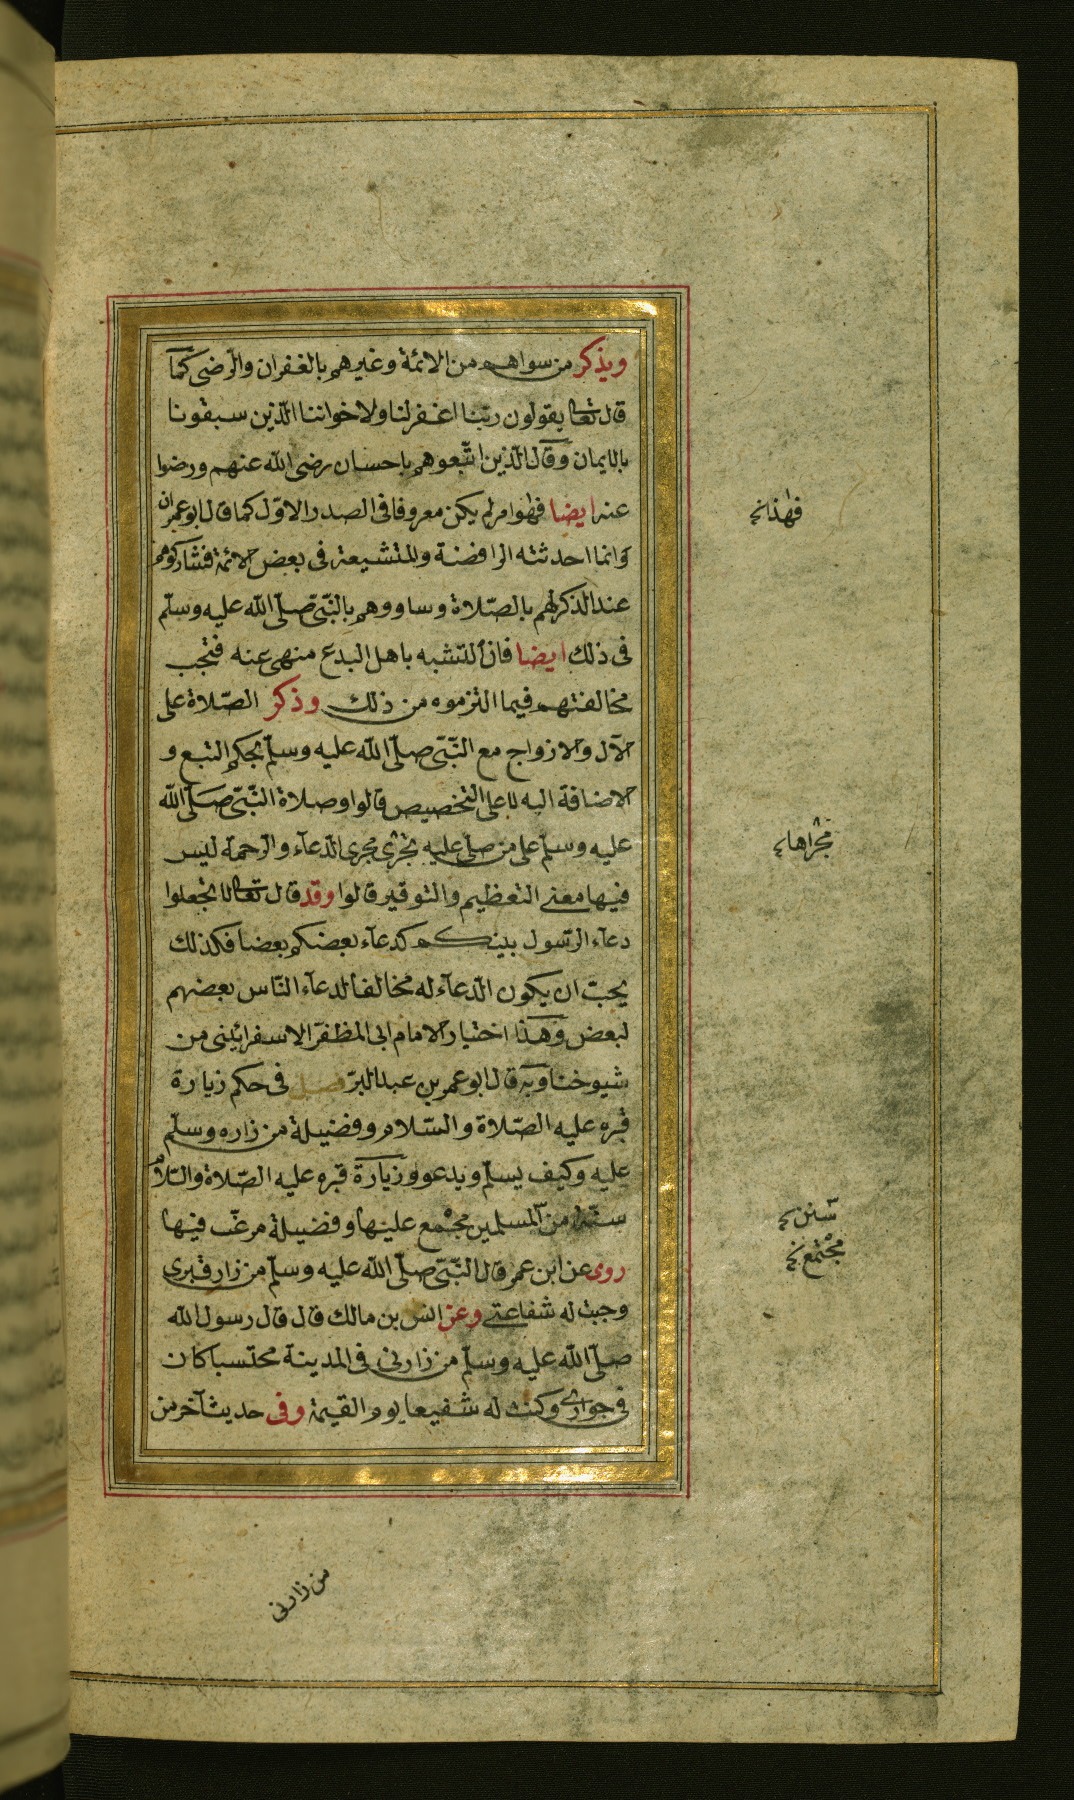 ويذكر من سواهم من الائمة وغيرهم بالغفران والرّضى كمآ
قال تعالى يقولون ربّنا اغفرلنا ولاخواننا الّذين سبقونا
بالايمان وقال الّذين اتّبعوهم باحسان رضى الله عنهم ورضوا
عنه ايضا فهوامر لم يكن معروفا فى الصدر الاوّل كما قال ابو عمران
وانما احدثته الرافضة والمتشيعة فى بعض الائمة فشاركوهم
عند الذكر لهم بالصّلاة وساووهم بالنّبىّ صلّى الله عليه وسلّم
فى ذلك ايضا فان التشبه باهل البدع منهى عنه فتجب
مخالفتهم فيما التزموه من ذلك وذكر الصّلاة على
الآل والازواج مع النّبىّ صلّى الله عليه وسلّم بحكم التبع و
الاضافة اليه لا على التخصيص قالوا وصلاة النّبىّ صَلّى الله
عليه وسلّم على من صلّى عليه مجرى الدعآء والرحمة ليس
فيها معنى التعظيم والتوقير قالوا وقد قال تعالى لا تجعلوا
دعآء الرّسول بينكم كدعآء بعضكم بعضا فكذلك
يجب ان يكون الدّعآء له مخالفا لدعآء النّاس بعضهم
لبعض وهذا اختيار الامام ابى المظفر الاسفرائينى من
شيوخنا وبه قال ابو عمر بن عبد البرّ فصل فى حكم زيارة
قبره عليه الصّلاة والسّلام وفضيلة من زاره وسلّم
عليه وكيف يسلّم ويدعو وزيارة قبره عليه الصّلاة والسّلام
سنّة من المسلمين مجتمع عليها وفضيلة مرغّب فيها
روى عن ابن عمر قال النّبىّ صلّى الله عليه وسلّم من زار قبرى
وجبت له شفاعتى وعن انس بن مالك قال قال رسول الله
صلّى الله عليه وسلّم من زارنى فى المدينة محتسبا كان
فى جوارى وكنت له شفيعا يوم القيمة وفى حديث آخر من
فهذا
مجراها
سنن
مجتمع
من زارنى